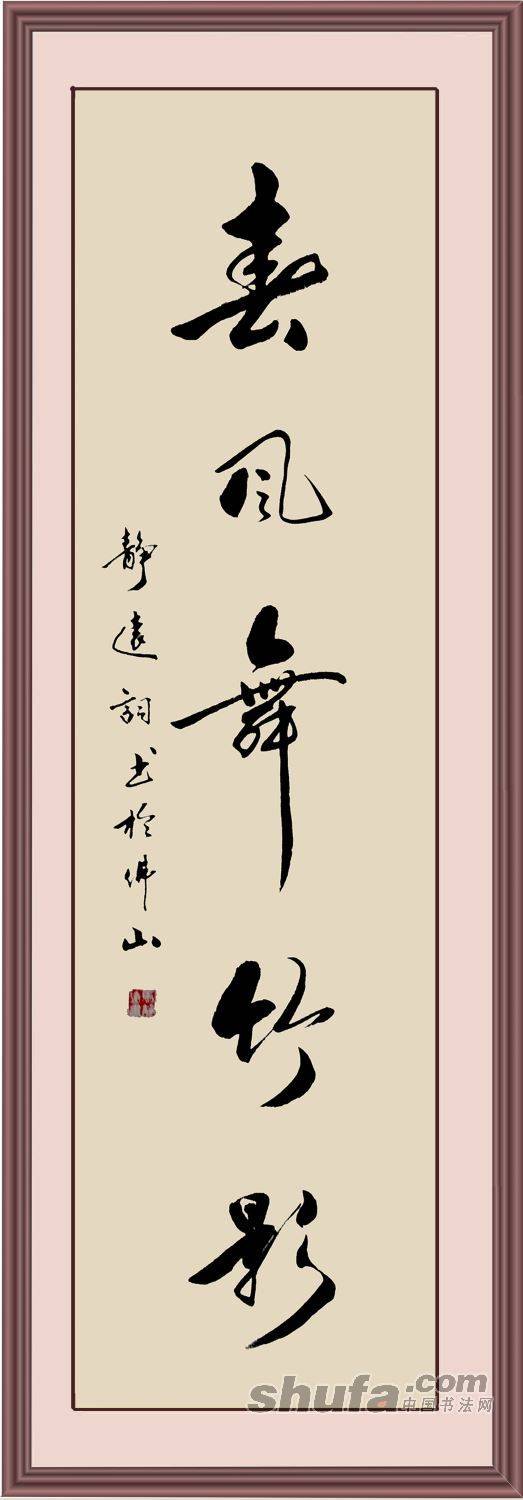 春风舞竹影
静遠詞书於佛山
shufa.com
中国书法网